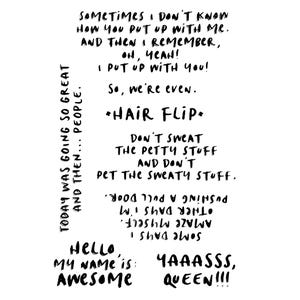 SOMETIMES I DON'T KNOW
HOW YOU PUT UP WITH ME.
AND THEN I REMEMBER,
OH, YEAH!
I PUT UP WITH YOU!
SO, WE'RE EVEN.
*HAIR FLIP*
TODAY WAS GOING SO GREAT
AND THEN... PEOPLE.
DON'T SWEAT
THE PETTY STUFF
AND DON'T
PET THE SWEATY STUFF.
SOME DAYS I
AMAZE MYSELF.
OTHER DAYS I'M
PUSHING A PULL DOOR.
HELLO,
MY NAME IS:
AWESOME
YAAASSS,
QUEEN!!!